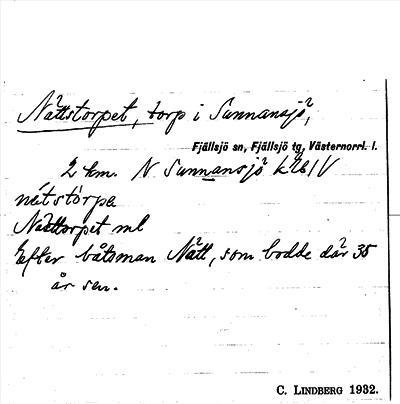 Nättstorpet, torp i Sunnansjö,
Fjällsjö sn, Fjällsjö tg, Västernorrl. l.
2 km. N Sunnansjö
nétstòrpa
Nättorpit ml
Efter båtsman Nätt, som bodde där 35
år sen.
C. LINDBERG 1932.